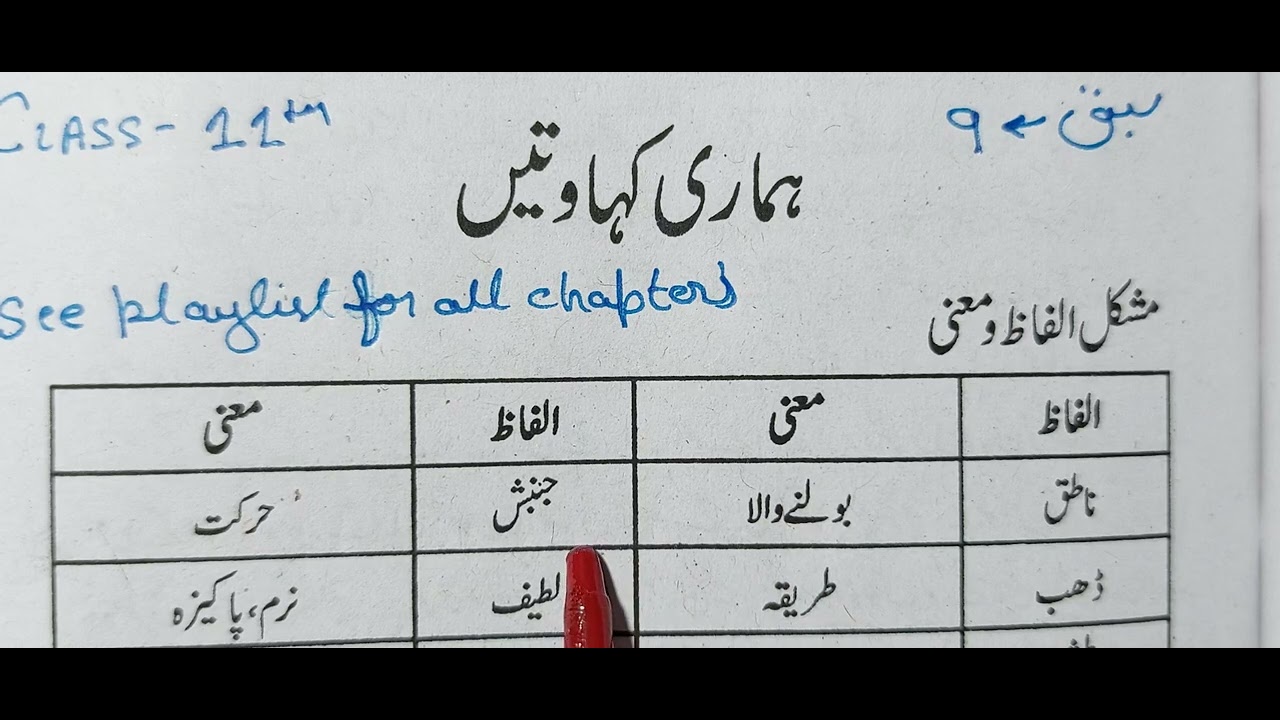 CLASS - 11th
سبق ← 9
ہماری کہاوتیں
See playlist for all chapters
مشکل الفاظ و معنی
الفاظ معنی الفاظ معنی
ناطق بولنے والا جنبش حرکت
ڈھب طریقہ لطیف نرم، پاکیزہ